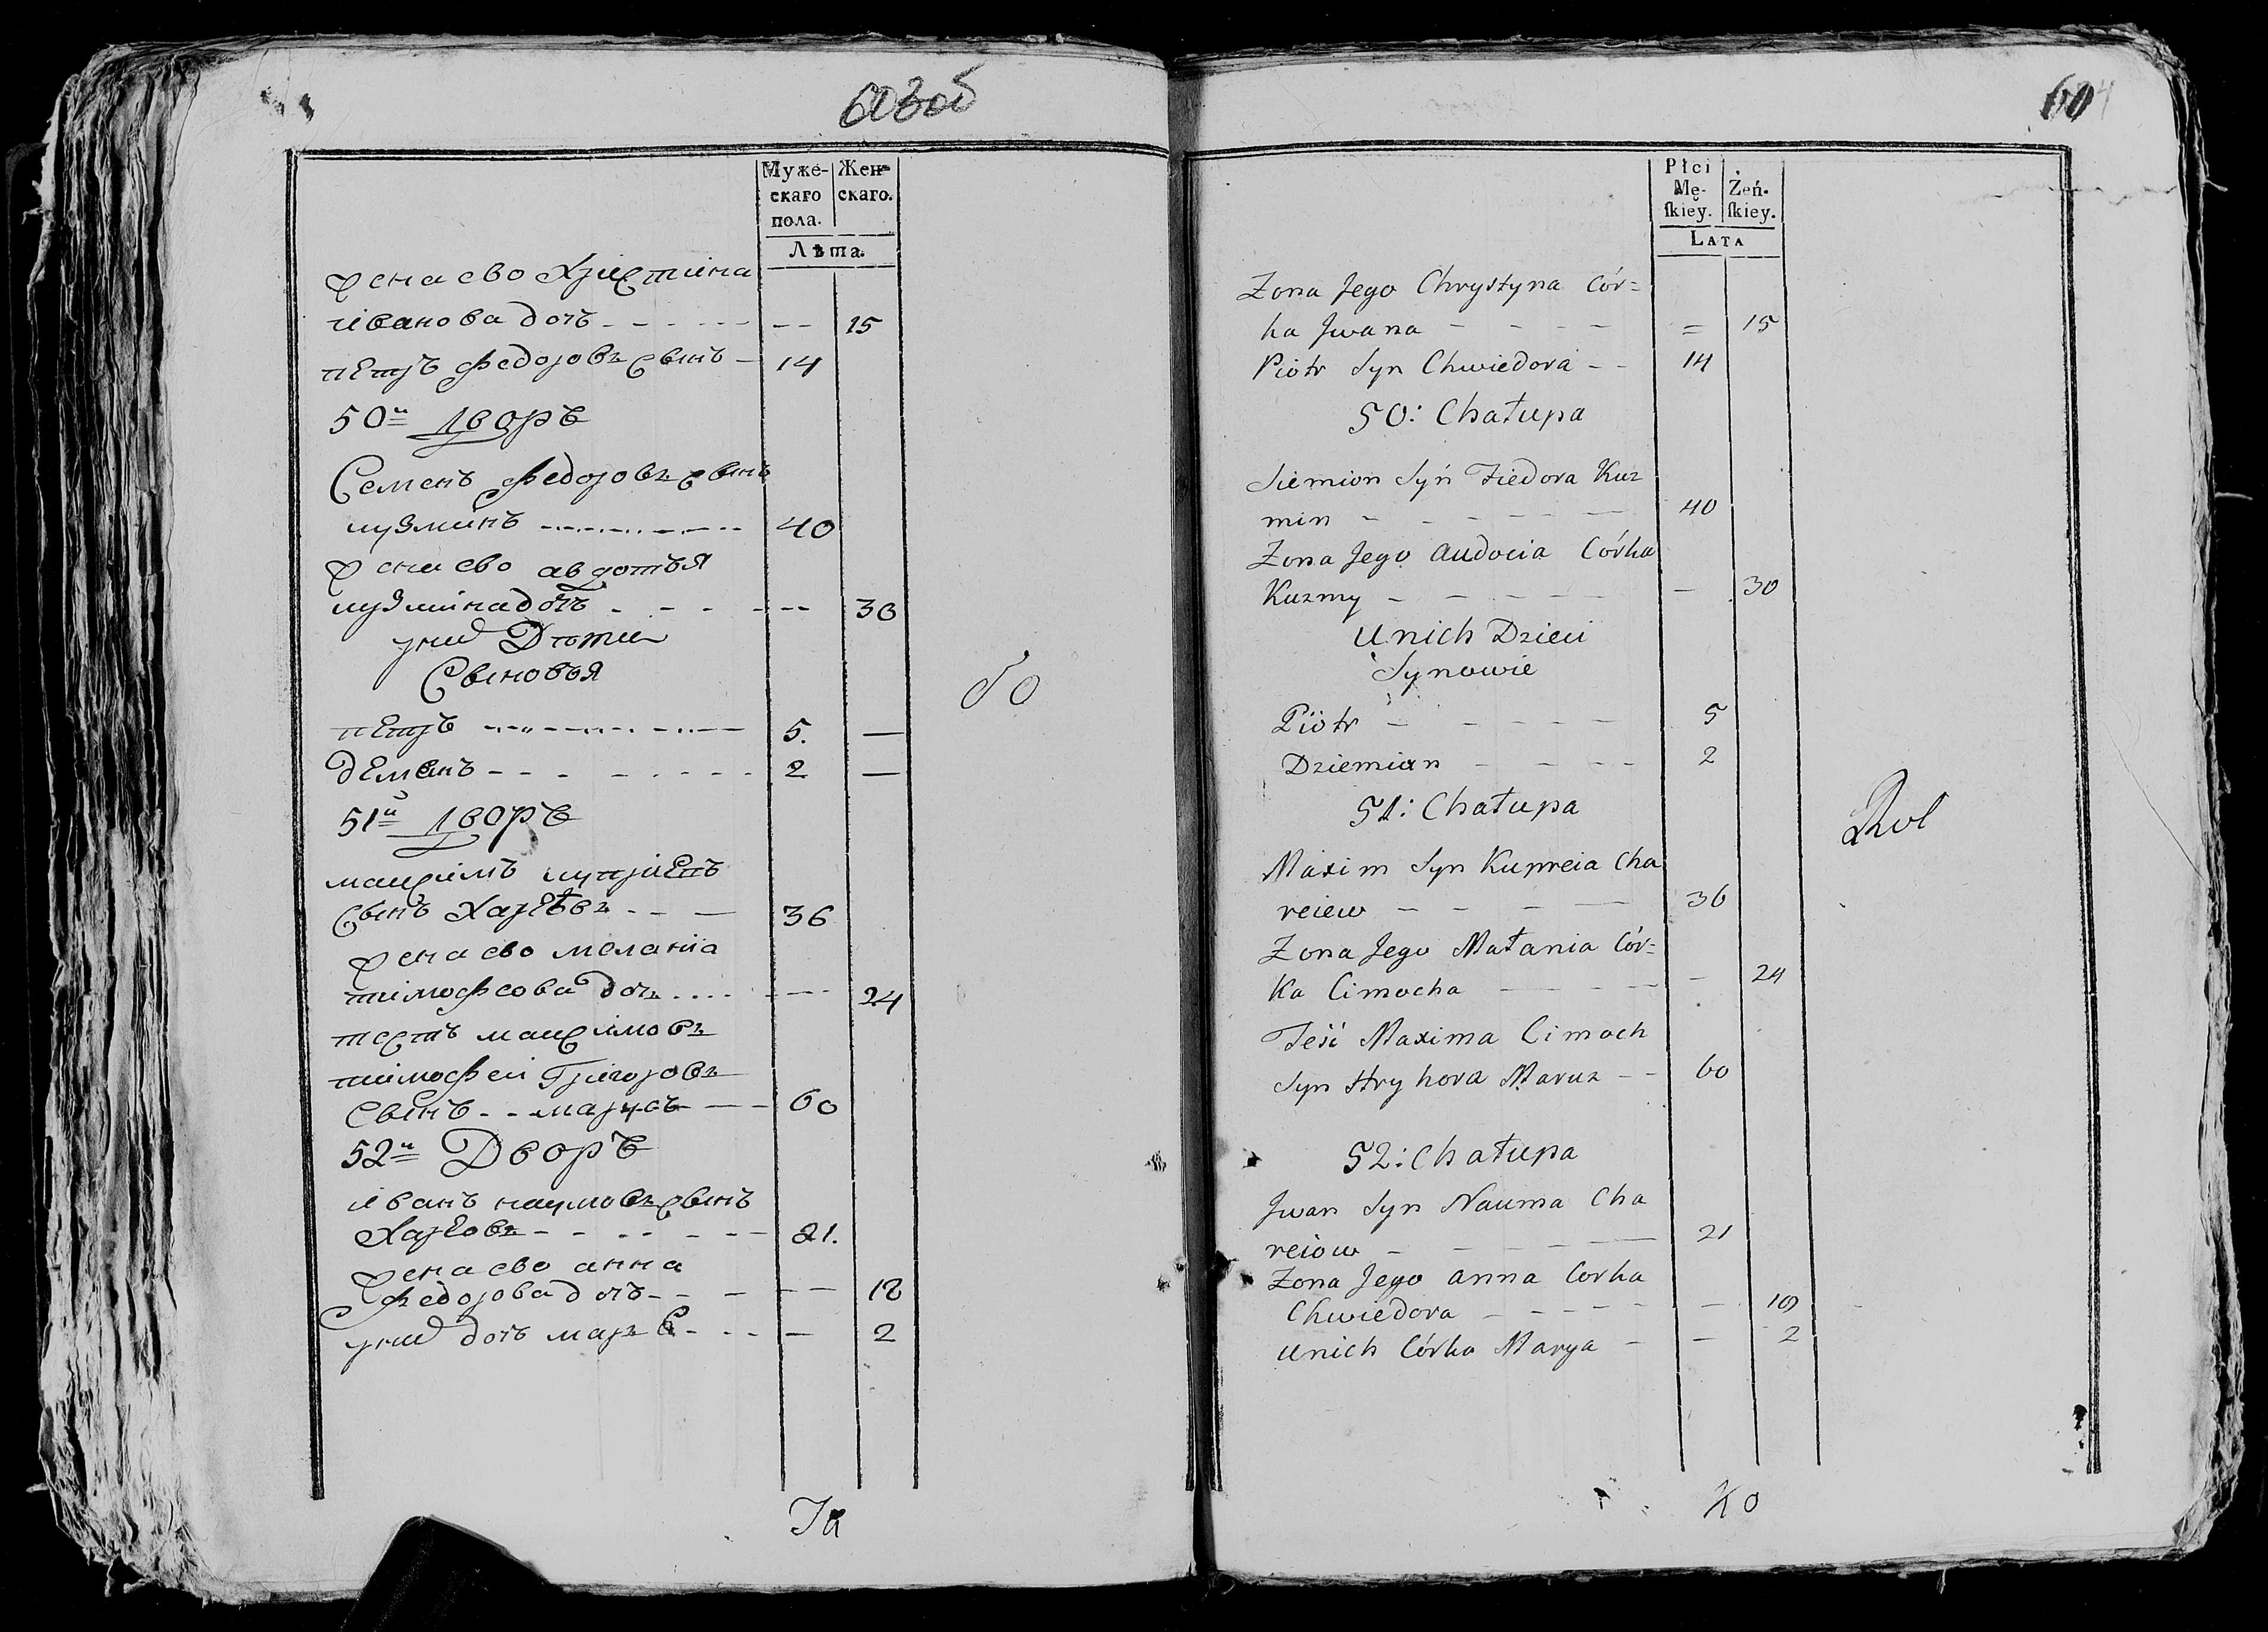 603об
Муже-
скаго
пола.
Жен-
скаго.
Лѣта.
жена ево Христина
иванова дочь - - - - - - - - 15
петръ Федоровъ сынъ - 14
50й Дворъ
Семенъ Федоровъ сынъ
кузминъ - - - - - - 40
жена ево авдотья
кузмина дочь - - - - - - 30
у них Дѣти
Сыновья
петръ - - - - - - 5. —
деменъ - - - - - - 2 —
51й Дворъ
максимъ купріевъ
сынъ Харѣевъ - - — 36
жена ево меланіа
тимофеова дочъ - - - - - - 24
тесть максимовъ
тимофеи Григоровъ
сынъ - - марусъ - - 60
52й Дворъ
иванъ наумовъ сынъ
Харѣовъ - - - - - - 21.
жена ево анна
Федорова дочь - - - - - 18
у них дочь - - - — 2
Ја
604
Płci
Mę-
ſkiey.
Żeń-
ſkiey.
LATA
Zona Jego Chrystyna Cór=
ka Jwana - - - - = 15
Piotr Syn Chwiedora - - 14
50: Chałupa
Siemion Syn Fiedora Kuz
min - - - - - - 40
Zona Jego Audocia Córka
Kuzmy - - - - - — 30
Unich Dzieci
Synowie
Piotr - - - - - 5
Dziemian - - - - 2
51: Chałupa
Maxim Syn Kupreia Cha
reiew - - - — 36
Zona Jego Małania Cór=
Ka Cimocha - - - - - 24
Teść Maxima Cimoch
Syn Hryhora Maruz - - 60
52: Chałupa
Jwan Syn Nauma Cha
reiow - - - - - 21
Zona Jego Anna Corka
Chwiedora - - - - - — 18
Unich Córka Marya - — 2
Ко